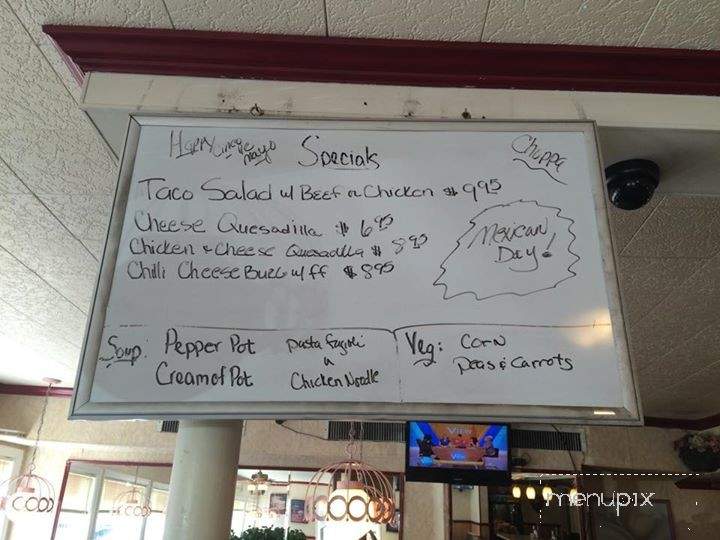 Happy Cinco de Mayo
Specials
Chuppa
Taco Salad w/ Beef or Chicken $ 9.95
Cheese Quesadilla $ 6.95
Chicken & Cheese Quesadilla $ 8.95
Chilli Cheese Burg w/ ff $ 8.95
Mexican
Day!
Soup: Pepper Pot
Cream of Pot
Pasta Fagioli
Chicken Noodle
Veg: Corn
Peas & Carrots
View
menupix